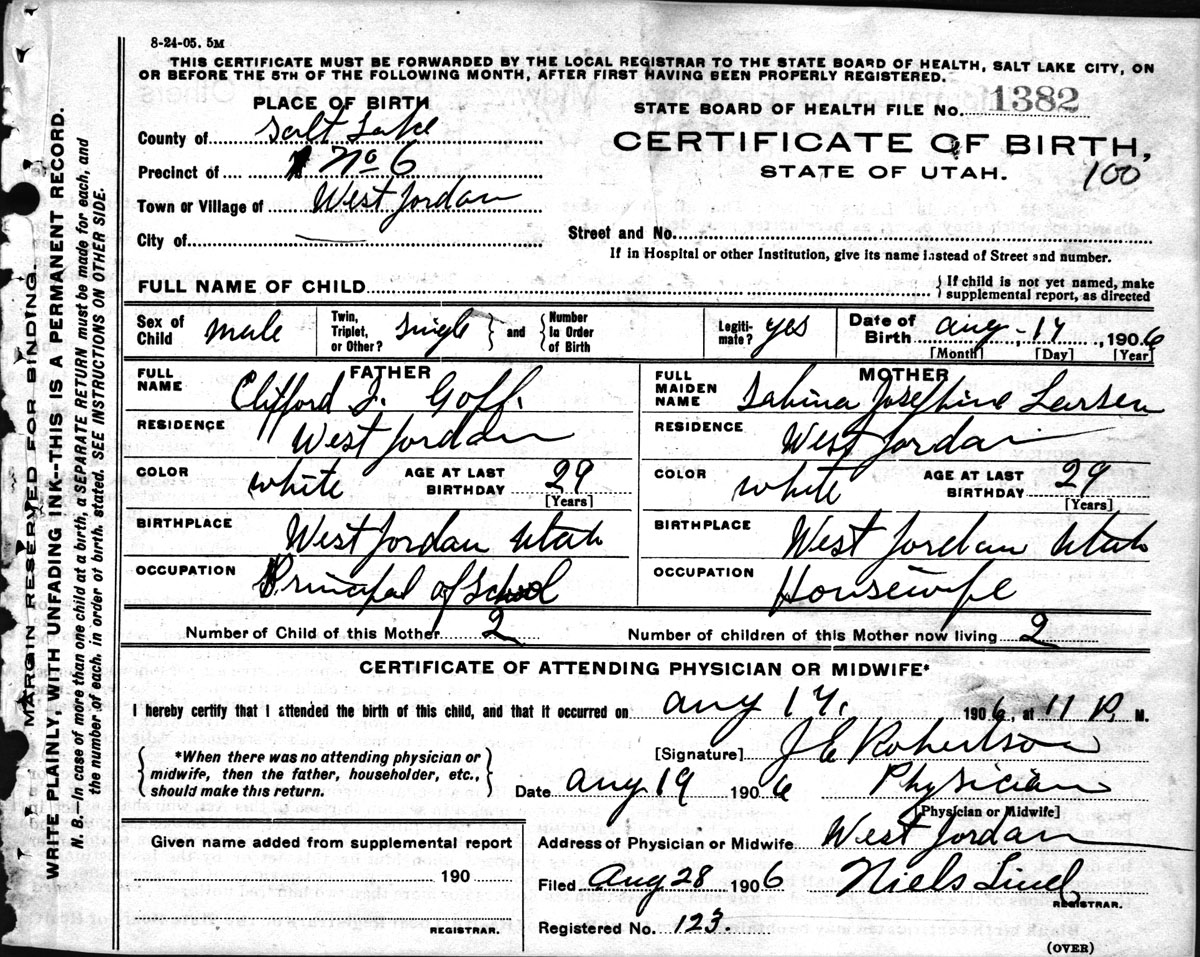 8-24-05. 5M
THIS CERTIFICATE MUST BE FORWARDED BY THE LOCAL REGISTRAR TO THE STATE BOARD OF HEALTH, SALT LAKE CITY, ON
OR BEFORE THE 5TH OF THE FOLLOWING MONTH, AFTER FIRST HAVING BEEN PROPERLY REGISTERED.
MARGIN RESERVED FOR BINDING.
WRITE PLAINLY, WITH UNFADING INK--THIS IS A PERMANENT RECORD.
N. B.—In case of more than one child at a birth, a SEPARATE RETURN must be made for each, and
the number of each, in order of birth, stated. SEE INSTRUCTIONS ON OTHER SIDE.
PLACE OF BIRTH
County of Salt Lake
Precinct of No 6
Town or Village of West Jordan
City of
STATE BOARD OF HEALTH FILE No. 1382
CERTIFICATE OF BIRTH,
STATE OF UTAH. 100
Street and No.
If in Hospital or other Institution, give its name instead of Street and number.
FULL NAME OF CHILD
If child is not yet named, make
supplemental report, as directed
Sex of Child male
Twin, Triplet, or Other? Single
and
Number in Order of Birth
Legitimate? yes
Date of Birth Aug. 17, 1906
[Month] [Day] [Year]
FATHER
FULL NAME Clifford I. Goff.
RESIDENCE West Jordan
COLOR white AGE AT LAST BIRTHDAY 29
[Years]
BIRTHPLACE West Jordan Utah
OCCUPATION Principal of School
MOTHER
FULL MAIDEN NAME Sabina Josephine Larsen
RESIDENCE West Jordan
COLOR white AGE AT LAST BIRTHDAY 29
[Years]
BIRTHPLACE West Jordan Utah
OCCUPATION Housewife
Number of Child of this Mother 2 Number of children of this Mother now living 2
CERTIFICATE OF ATTENDING PHYSICIAN OR MIDWIFE*
I hereby certify that I attended the birth of this child, and that it occurred on Aug 17, 1906, at 11 P. M.
*When there was no attending physician or
midwife, then the father, householder, etc.,
should make this return.
[Signature] J E Robertson
Date Aug 19 1906 Physician
[Physician or Midwife]
Address of Physician or Midwife West Jordan
Given name added from supplemental report
190
REGISTRAR.
Filed Aug 28 1906 Niels Lind
REGISTRAR.
Registered No. 123.
(OVER)